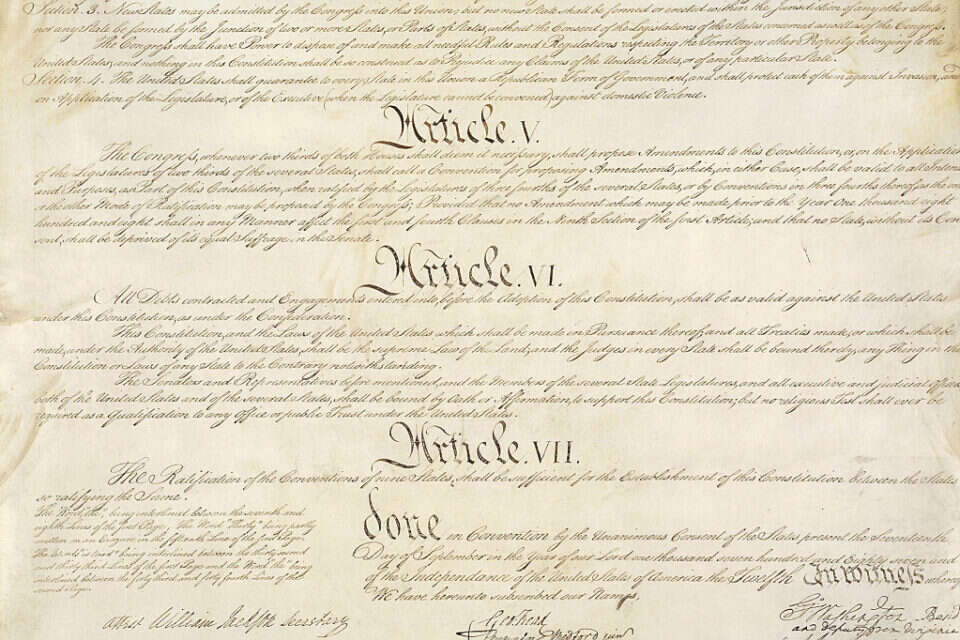 Section. 3. New States may be admitted by the Congress into this Union; but no new State shall be formed or erected within the Jurisdiction of any other State;
nor any State be formed by the Junction of two or more States, or Parts of States, without the Consent of the Legislatures of the States concerned as well as of the Congress.
The Congress shall have Power to dispose of and make all needful Rules and Regulations respecting the Territory or other Property belonging to the
United States; and nothing in this Constitution shall be so construed as to Prejudice any Claims of the United States, or of any particular State.
Section. 4. The United States shall guarantee to every State in this Union a Republican Form of Government, and shall protect each of them against Invasion; and
on Application of the Legislature, or of the Executive (when the Legislature cannot be convened) against domestic Violence.
Article. V.
The Congress, whenever two thirds of both Houses shall deem it necessary, shall propose Amendments to this Constitution, or, on the Application
of the Legislatures of two thirds of the several States, shall call a Convention for proposing Amendments, which, in either Case, shall be valid to all Intents
and Purposes, as Part of this Constitution, when ratified by the Legislatures of three fourths of the several States, or by Conventions in three fourths thereof, as the one
or the other Mode of Ratification may be proposed by the Congress; Provided that no Amendment which may be made prior to the Year One thousand eight
hundred and eight shall in any Manner affect the first and fourth Clauses in the Ninth Section of the first Article; and that no State, without its Con
sent, shall be deprived of its equal Suffrage in the Senate.
Article. VI.
All Debts contracted and Engagements entered into, before the Adoption of this Constitution, shall be as valid against the United States
under this Constitution, as under the Confederation.
This Constitution, and the Laws of the United States which shall be made in Pursuance thereof; and all Treaties made, or which shall be
made, under the Authority of the United States, shall be the supreme Law of the Land; and the Judges in every State shall be bound thereby, any Thing in the
Constitution or Laws of any State to the Contrary notwithstanding.
The Senators and Representatives before mentioned, and the Members of the several State Legislatures, and all executive and judicial Officers,
both of the United States and of the several States, shall be bound by Oath or Affirmation, to support this Constitution; but no religious Test shall ever be
required as a Qualification to any Office or public Trust under the United States.
Article. VII.
The Ratification of the Conventions of nine States, shall be sufficient for the Establishment of this Constitution between the States
so ratifying the Same.
The Word, "the," being interlined between the seventh and
eighth Lines of the first Page, The Word "Thirty" being partly
written on an Erazure in the fifteenth Line of the first Page,
The Words "is tried" being interlined between the thirty second
and thirty third Lines of the first Page and the Word "the" being
interlined between the forty third and forty fourth Lines of the
second Page.
done in Convention by the Unanimous Consent of the States present the Seventeenth
Day of September in the Year of our Lord one thousand seven hundred and Eighty seven and
of the Independance of the United States of America the Twelfth In witness whereof
We have hereunto subscribed our Names,
Attest William Jackson Secretary
Geo: Read
Gunning Bedford jun
Go: Washington Presidt
and deputy from Virginia